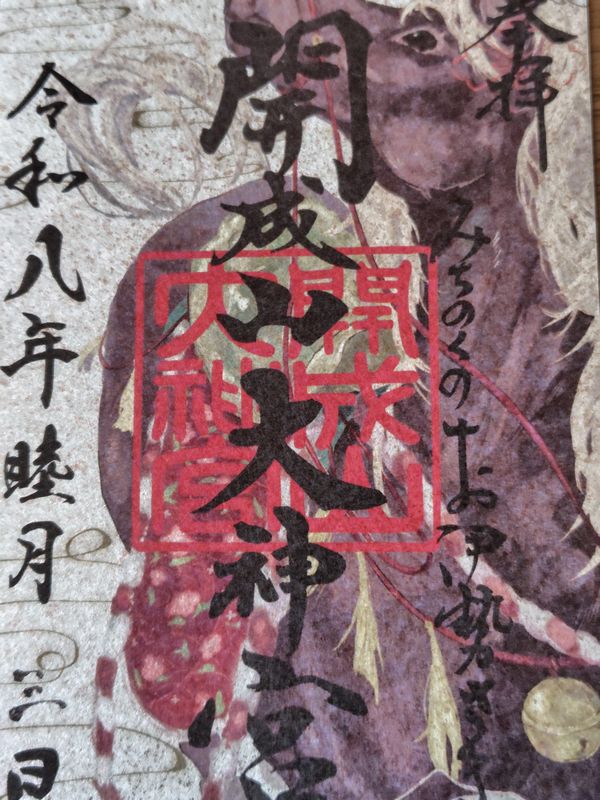 奉拝
みちのくのお伊勢さま
開成山大神宮
開成山
大神宮
令和八年睦月三日